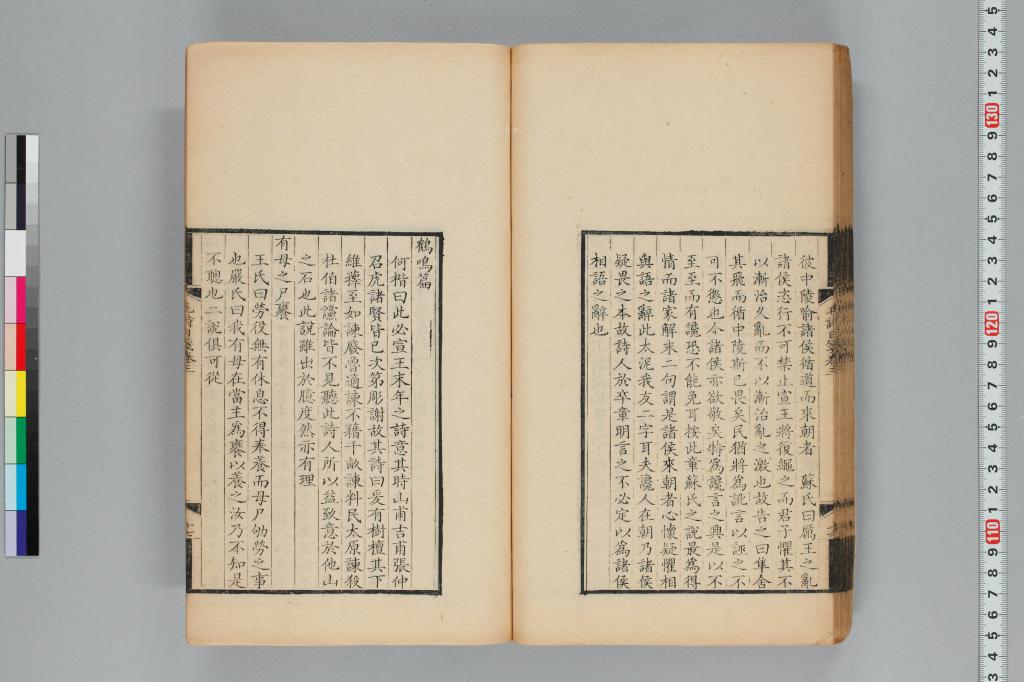 彼中陵喻諸侯循道而來朝者　蘇氏曰厲王之亂
諸侯恣行不可禁止宣王將復繩之而君子懼其不
以漸治久亂而不以漸治亂之激也故告之曰隼舍
其飛而循中陵斯已畏矣民猶將為訛言以誣之不
可不懲也今諸侯亦欲敬矣特為讒言之興是以不
至至而有讒恐不能免耳按此章蘇氏之說最為得
情而諸家解末二句謂是諸侯來朝者心懷疑懼相
與語之辭此太泥我友二字耳夫讒人在朝乃諸侯
疑畏之本故詩人於卒章明言之不必定以為諸侯
相語之辭也
鶴鳴篇
何楷曰此必宣王末年之詩意其時山甫吉甫張仲
召虎諸賢皆已次第彫謝故其詩曰爰有樹檀其下
維蘀至如諫廢魯適諫不藉千畝諫料民太原諫殺
杜伯諸讜論皆不見聽此詩人所以益致意於他山
之石也此說雖出於臆度然亦有理
有母之尸饔
王氏曰勞役無有休息不得奉養而母尸劬勞之事
也嚴氏曰我有母在當主為饔以養之汝乃不知是
不聰也二說俱可從